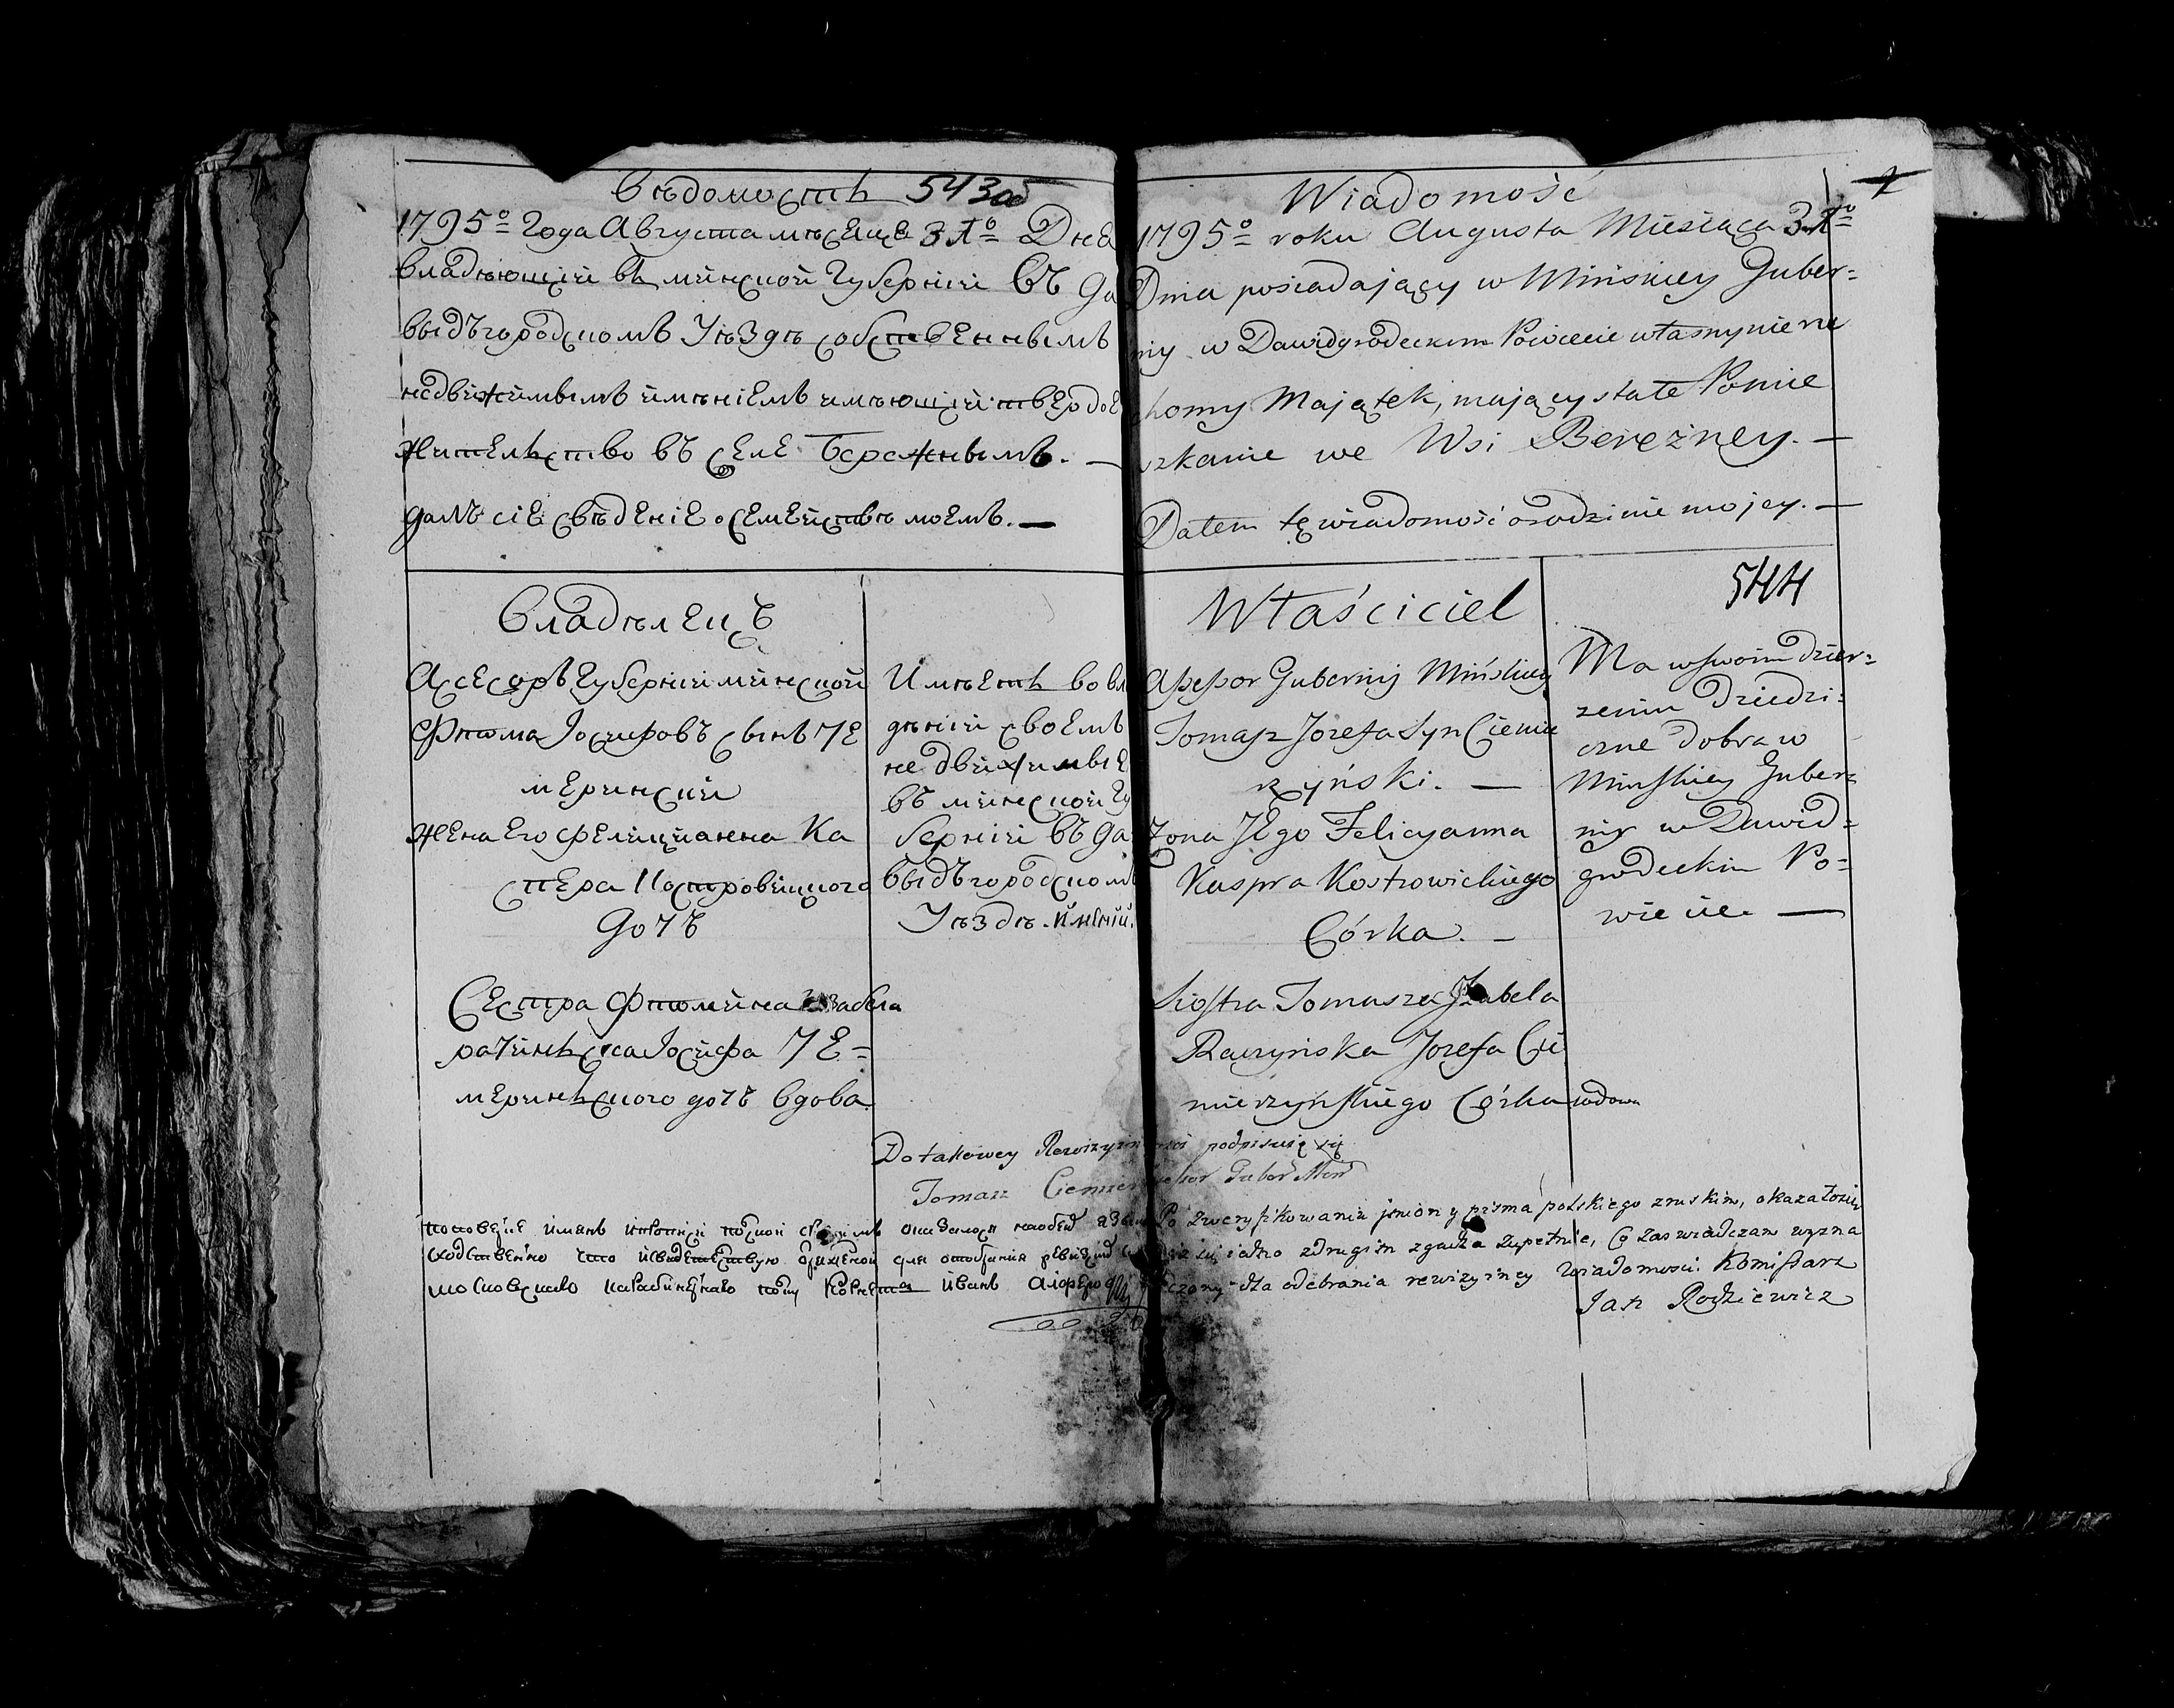 Вѣдомость 543об
1795º Года Августа мѣсяца 31º Дня
владѣющій въ минской Губерніи въ Да
выдъгородскомъ Уѣздѣ собственнымъ
недвижимымъ имѣніемъ имѣющій твердое
жительство въ селе Бережнымъ. —
далъ сіе свѣденіе о семействѣ моемъ. —
Владѣлецъ
Асесоръ Губерніи минской
Фтома Іосифовъ сынъ Че
меринский
жена Его Фелицианна Ка
спера Костровицкого
дочъ
Сестра Фтомина Изабела
рачиньска Іосифа Че=
мериньского дочъ вдова
Имѣетъ во вла
дѣніи своемъ
недвижимые
въ минской Гу
берніи въ Да
выдъгородскомъ
Уѣздѣ. имѣніи.
Wiadomość 1
1795º roku Augusta Miesiąca 31º
Dnia posiadaiący w Minskiey Guber=
nij w Dawidgrodeckim Powiecie własny nieru
homy Maiątek, maiący stałe Pomie
szkanie we Wsi Bereżney. —
Dałem tę wiadomość o rodzinie mojey. —
544
Właściciel
Assessor Gubernij Mińskiey
Tomasz Jozefa Syn Ciemie
rzyński. —
Żona Jego Felicyanna
Kaspra Kostrowickiego
Córka. —
Siostra Tomasza Izabela
Raczyńska Jozefa Cie
mierzyńskiego Córka wdowa
Ma w swoim dzier=
żeniu Dziedzi=
czne dobra w
Minskiey Guber=
nij w Dawid=
grodeckim Po=
wiecie. —
Do takowey Rewizyiności podpisuię się
Tomasz
сходственно что свидетельствую для отобрания
Иванъ
Po zweryfikowaniu jmion y pisma polskiego z ruskim, okazało się
iż iedno z drugim zgadza zupełnie, Co zaswiadczam wyzna
czony dla odebrania rewizyiney wiadomosci. Komissarz
Jan Rodziewicz